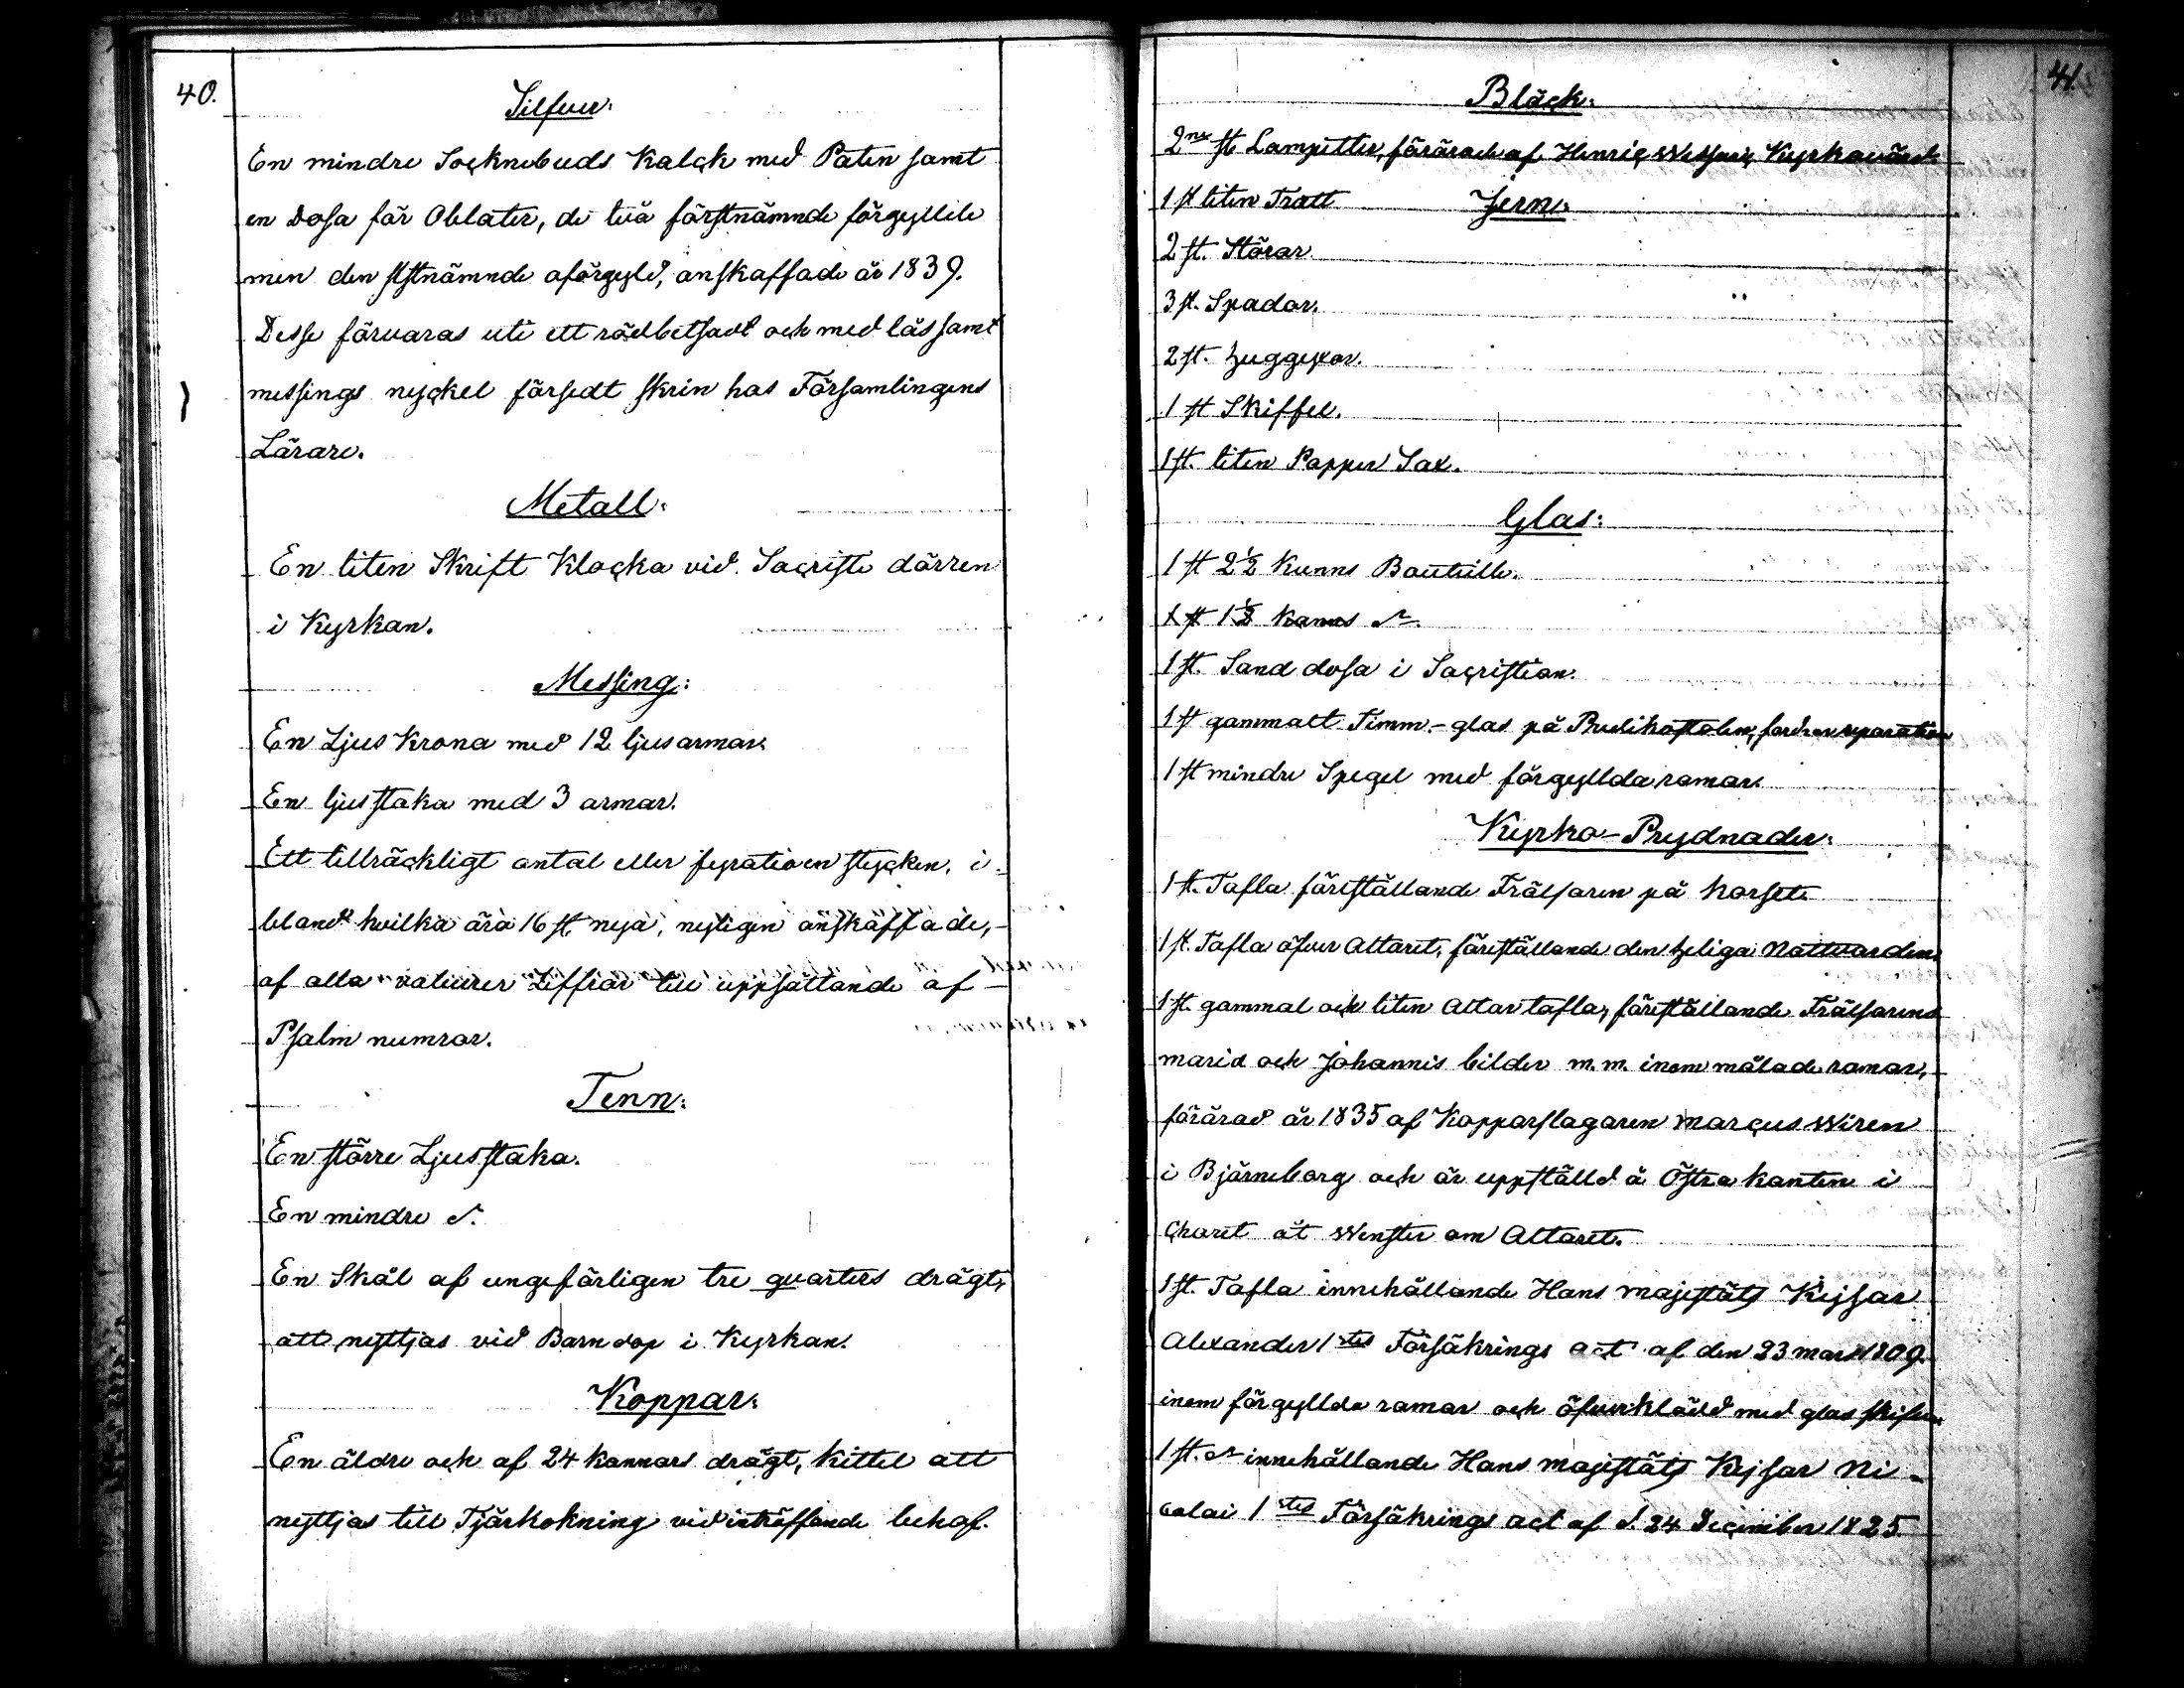 40.
Silfver:
En mindre Socknebuds Kalck med Paten samt
en Dosa för Oblater, de två förstnämnde förgyllde
men den sistnämnde oförgyld, anskaffade år 1839.
Desse förvaras uti ett rödbetsadt och med lås samt
messings nyckel försedt skrin hos Församlingens
Lärare.
Metall:
En liten Skrift Klocka vid Sacristi dörren
i Kyrkan.
Messing:
En Ljus Krona med 12 ljusarmar.
En ljusstaka med 3 armar.
Ett tillräckligt antal eller fyratioen stycken, i-
bland hvilka äro 16 st. nya, nyligen anskaffade,
af alla valeurer Ziffror till uppsättande af
Psalm numror.
Tenn:
En större Ljusstaka.
En mindre d:
En Skål af ungefärligen tre quarters drägt,
att nyttjas vid Barndop i Kyrkan.
Koppar:
En äldre och af 24 kannors drägt, kittel att
nyttjas till Tjärkokning vid inträffande behof.
41.
Bläck:
2ne st Lampetter, förärade af Henric Kyrkovärd.
1 st liten Tratt
Jern:
2 st. Störar.
3 st. Spador.
2 st. Huggyxor.
1 st Skiffel.
1 st. liten Papper Sax.
Glas:
1 st 2½ Kanns Bouteille.
1 st 1½ kanns d:o
1 st. Sand dosa i Sacristian.
1 st gammalt Timm-glas på Predikostolen, fordrar reparation
1 st mindre Spegel med förgyllda ramar.
Kyrko-Prydnader:
1 st. Tafla föreställande Frälsaren på korset.
1 st. Tafla öfver Altaret, föreställande den heliga Nattvarden
1 st. gammal och liten Altartafla, föreställande Frälsarens
mariæ och Johannis bilder m.m. inom målade ramar,
förärad år 1835 af Kopparslagaren Marcus Wiren
i Björneborg och är uppställd å Östra kanten i
Choret åt Wenster om Altaret.
1 st. Tafla innehållande Hans Majestäts Kejsar
Alexander 1stes Försäkrings act af den 23 mars 1809.
inom förgyllda ramar och öfverklädd med glas skifva.
1 st. d:o innehållande Hans Majestäts Kejsar Ni-
colai 1stes Försäkrings act af d. 24 December 1825.